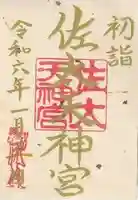 初詣
佐太神宮
令和六年一月
佐太
天神宮